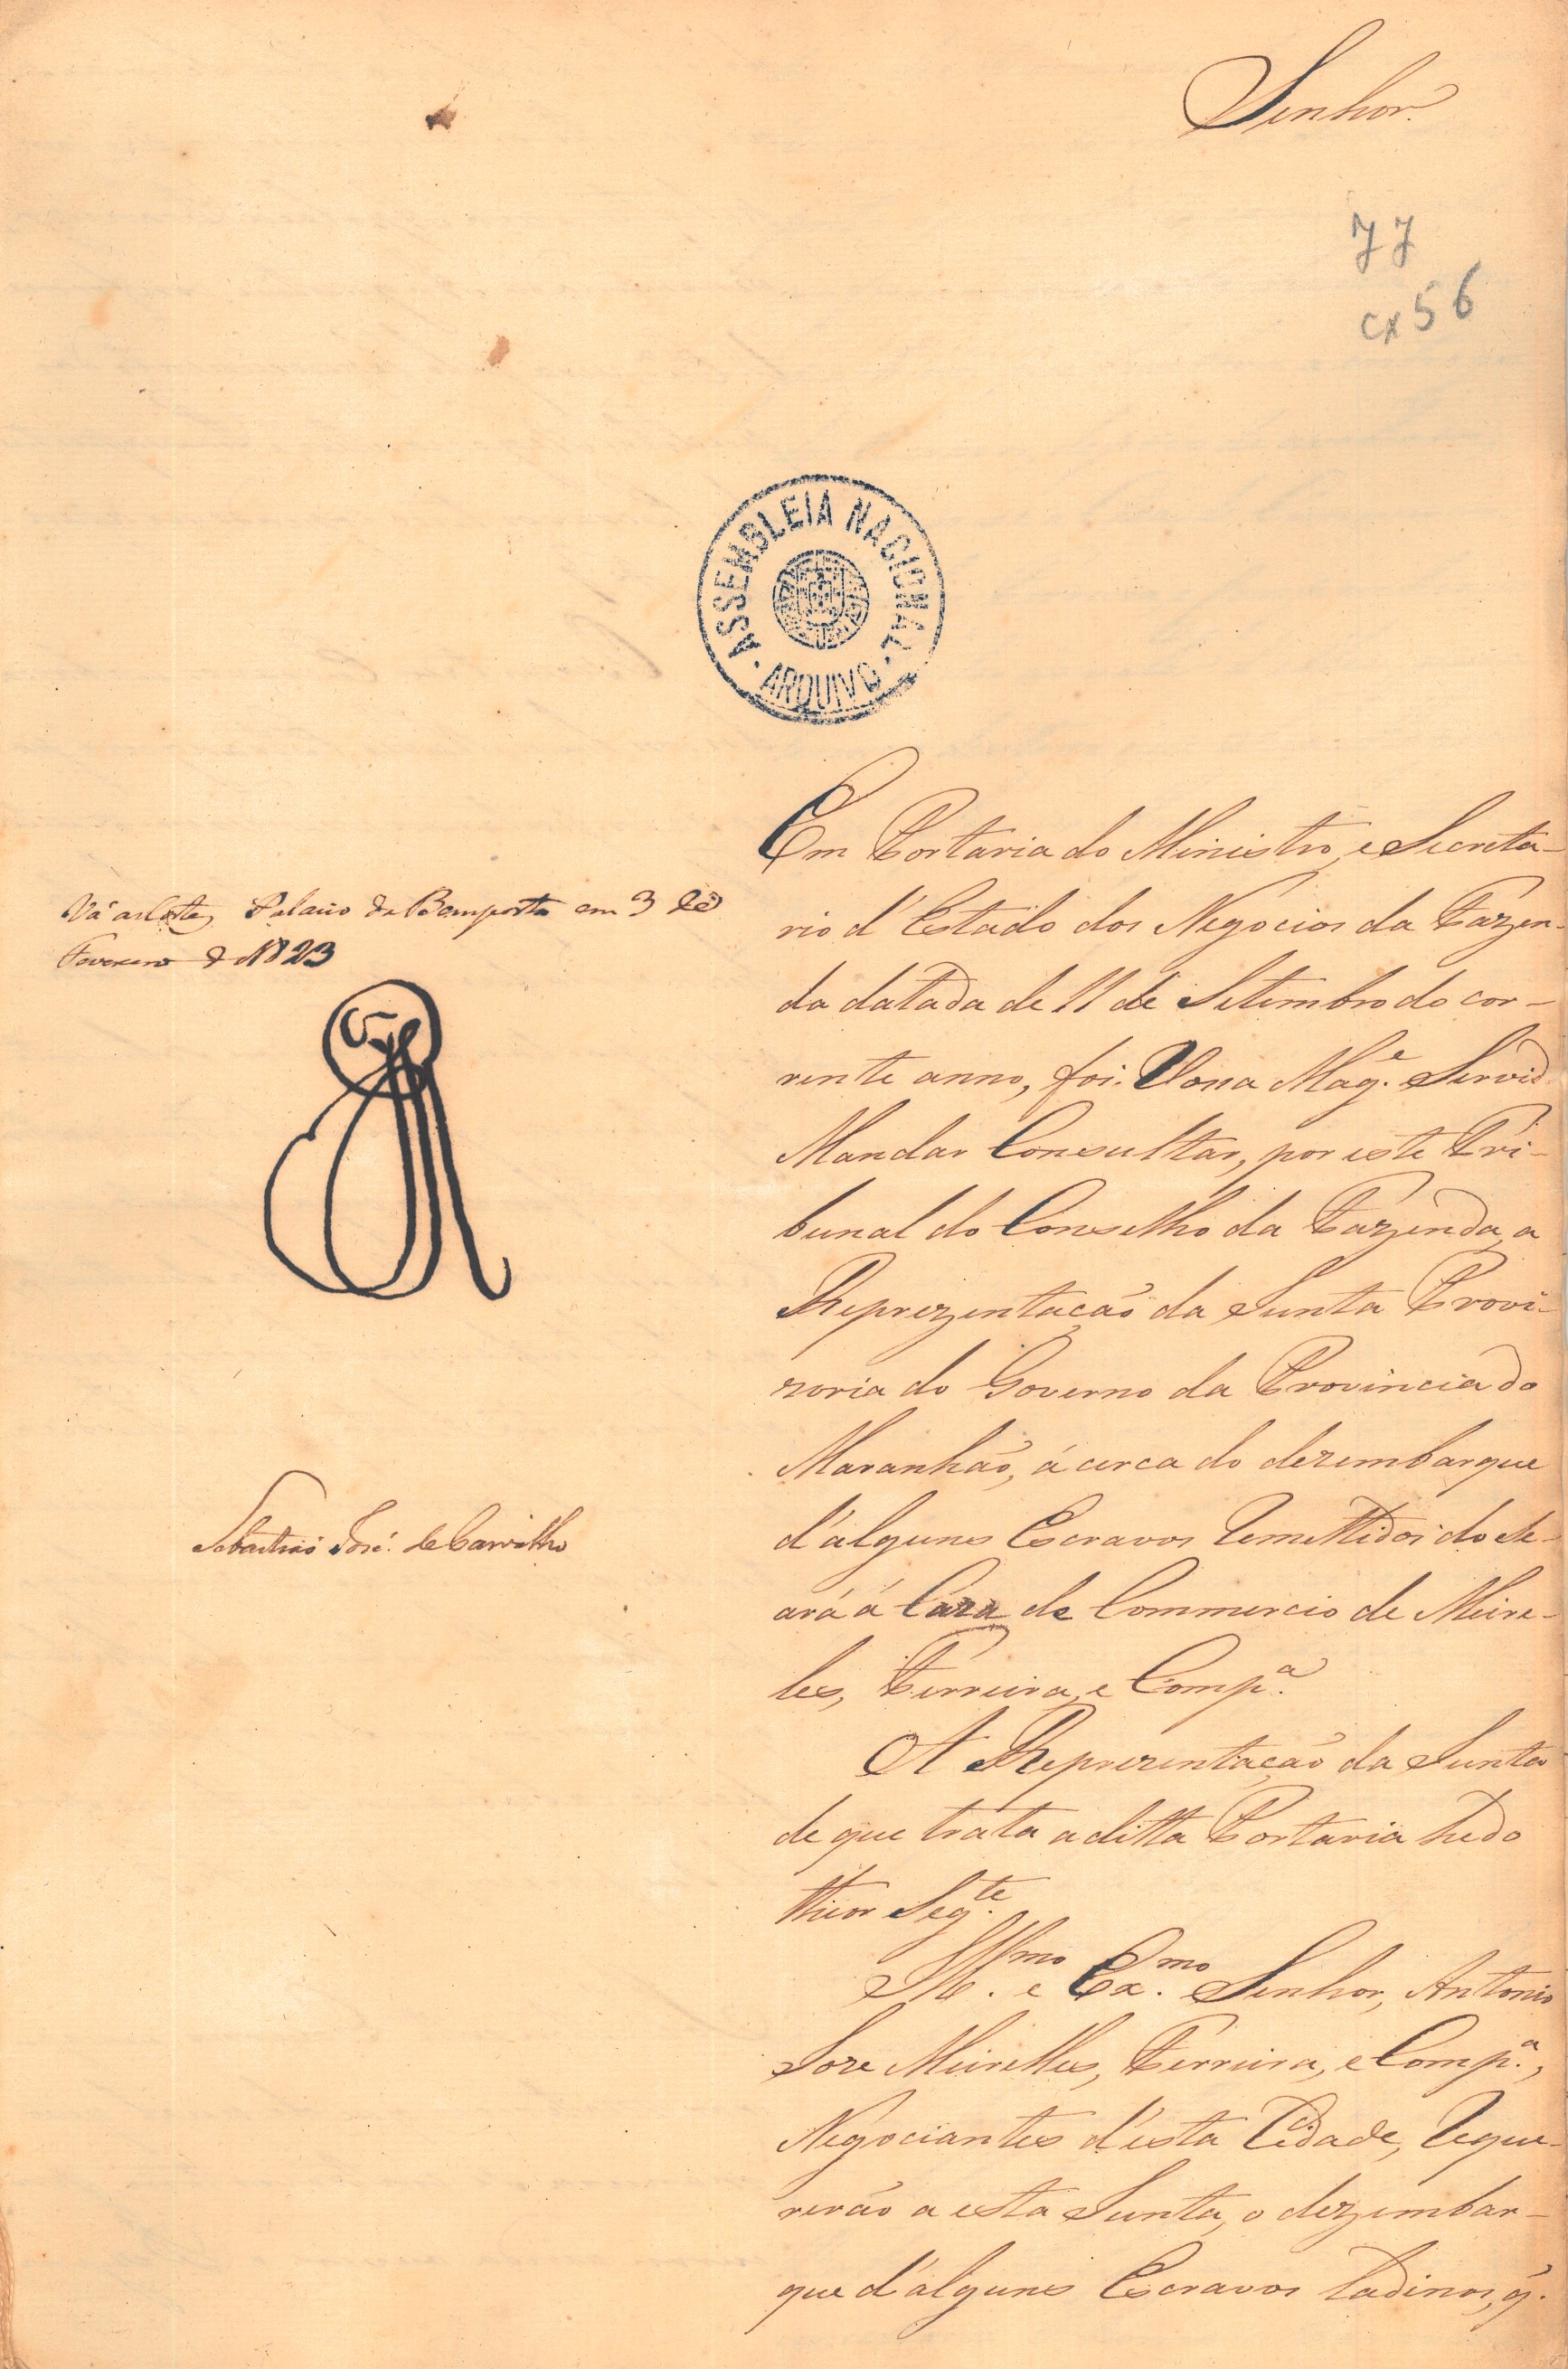 Senhor.
77
cx 56
ASSEMBLEIA NACIONAL
· ARQUIVO ·
Vá as Cortes, Palacio da Bemposta em 3 de
Fevereiro de 1823
Sebastiaõ José de Carvalho
Em Portaria do Ministro, e Secreta-
rio d'Estado dos Negocios da Fazen-
da datada de 11 de Setembro do cor-
rente anno, foi Vossa Mag.e Servid
Mandar Consultar, por este Tri-
bunal do Conselho da Fazenda, a
Reprezentaçaõ da Junta Provi-
zoria do Governo da Provincia do
Maranhaõ, á cerca do dezembarque
d'alguns Escravos remettidos do Se-
ará á Caza de Commercio de Meire-
les, Ferreira, e Comp.a
A Reprezentaçaõ da Junta
de que trata a ditta Portaria he do
theor Seg.te
Ill.mo e Ex.mo Senhor, Antonio
Joze Meirelles, Ferreira, e Comp.a,
Negociantes d'esta Cidade, reque-
reraõ a esta Junta, o dezembar-
que d'alguns Escravos ladinos, q.